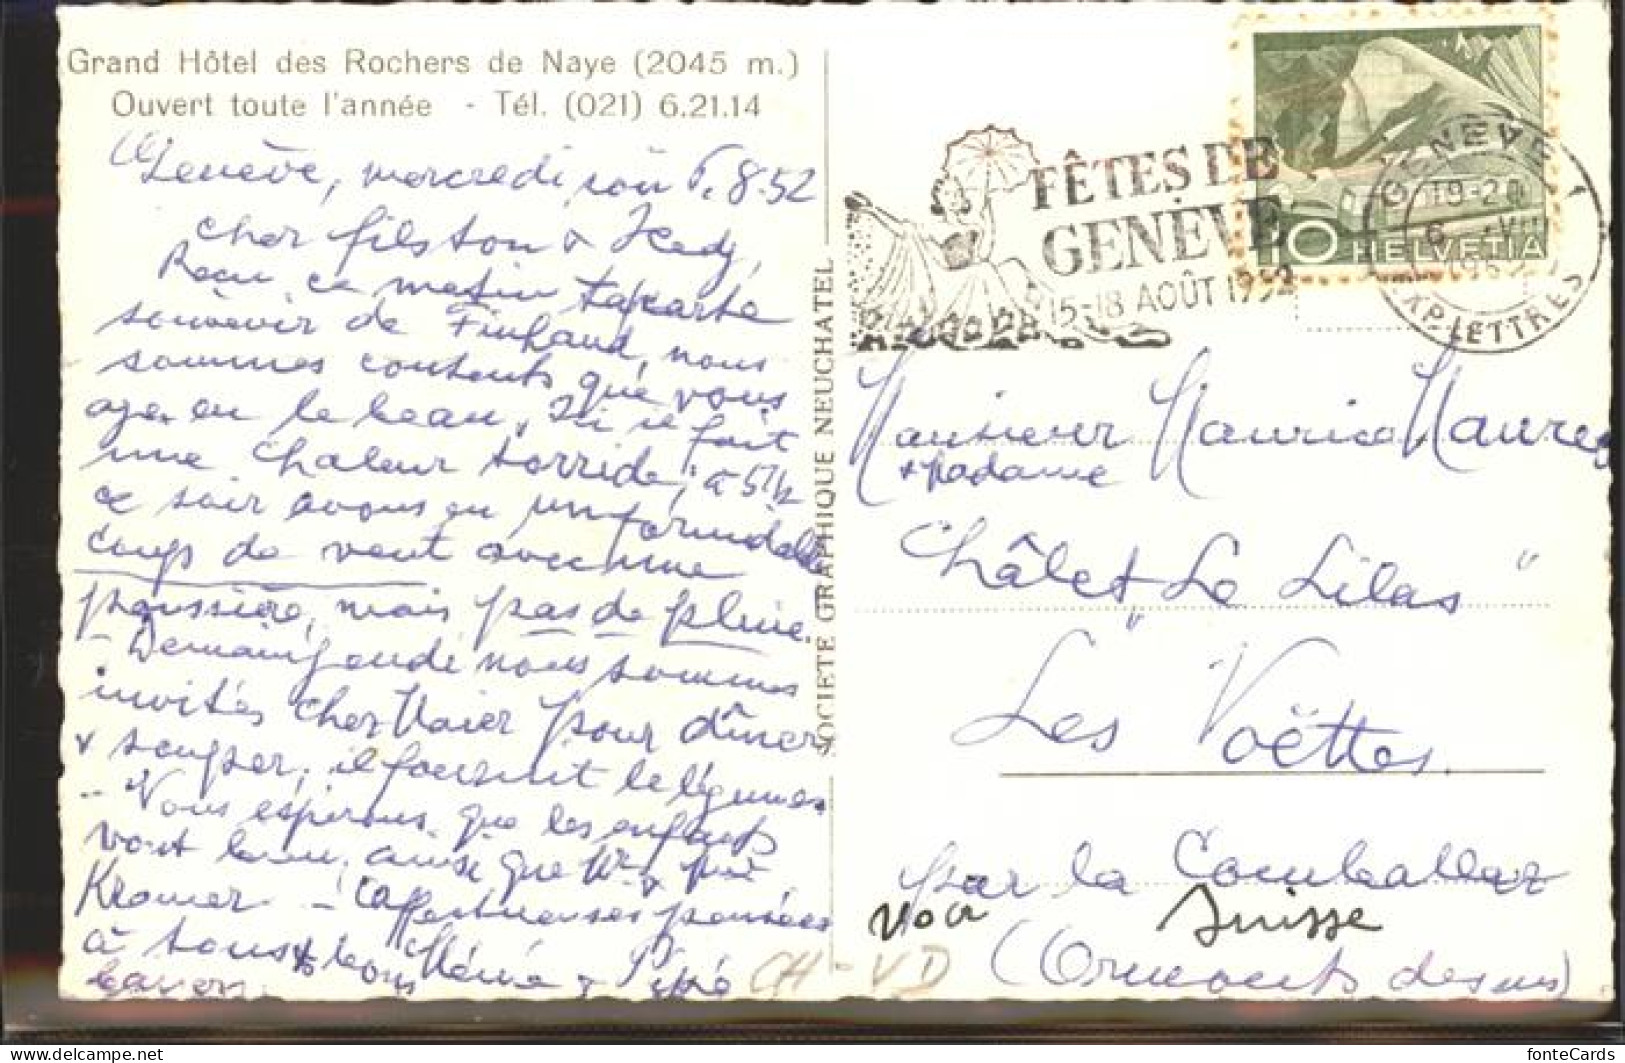 Grand Hôtel des Rochers de Naye (2045 m.)
Ouvert toute l'année - Tél. (021) 6.21.14
Genève, mercredi soir 6.8.52
Cher filston & Hedy,
Reçu ce matin ta carte
souvenir de Finhaut, nous
sommes contents que vous
ayez eu le beau. Ici il fait
une chaleur torride, à 5 1/2
ce soir avons eu un formidable
coup de vent avec une
poussière, mais pas de pluie.
- Demain jeudi nous sommes
invités chez pour dîner
& souper, il fournit le légumes.
- Nous espérons que les enfants
vont bien, ainsi que Mr &
Kramer - Affectueuses pensées
à tous & bons
baisers. Mémé & Pépé
SOCIETE GRAPHIQUE NEUCHATEL
FÊTES DE
GENÈVE
15-18 AOÛT 1952
10 HELVETIA
GENÈVE 1
19-20
6 VIII
1952
EXP. LETTRES
Monsieur Maurice
& Madame
Châlet "Le Lilas"
Les Voëttes
par la Comballaz
Suisse
(Ormonts dessus)
CH-VD
fonteCards
delcampe.net